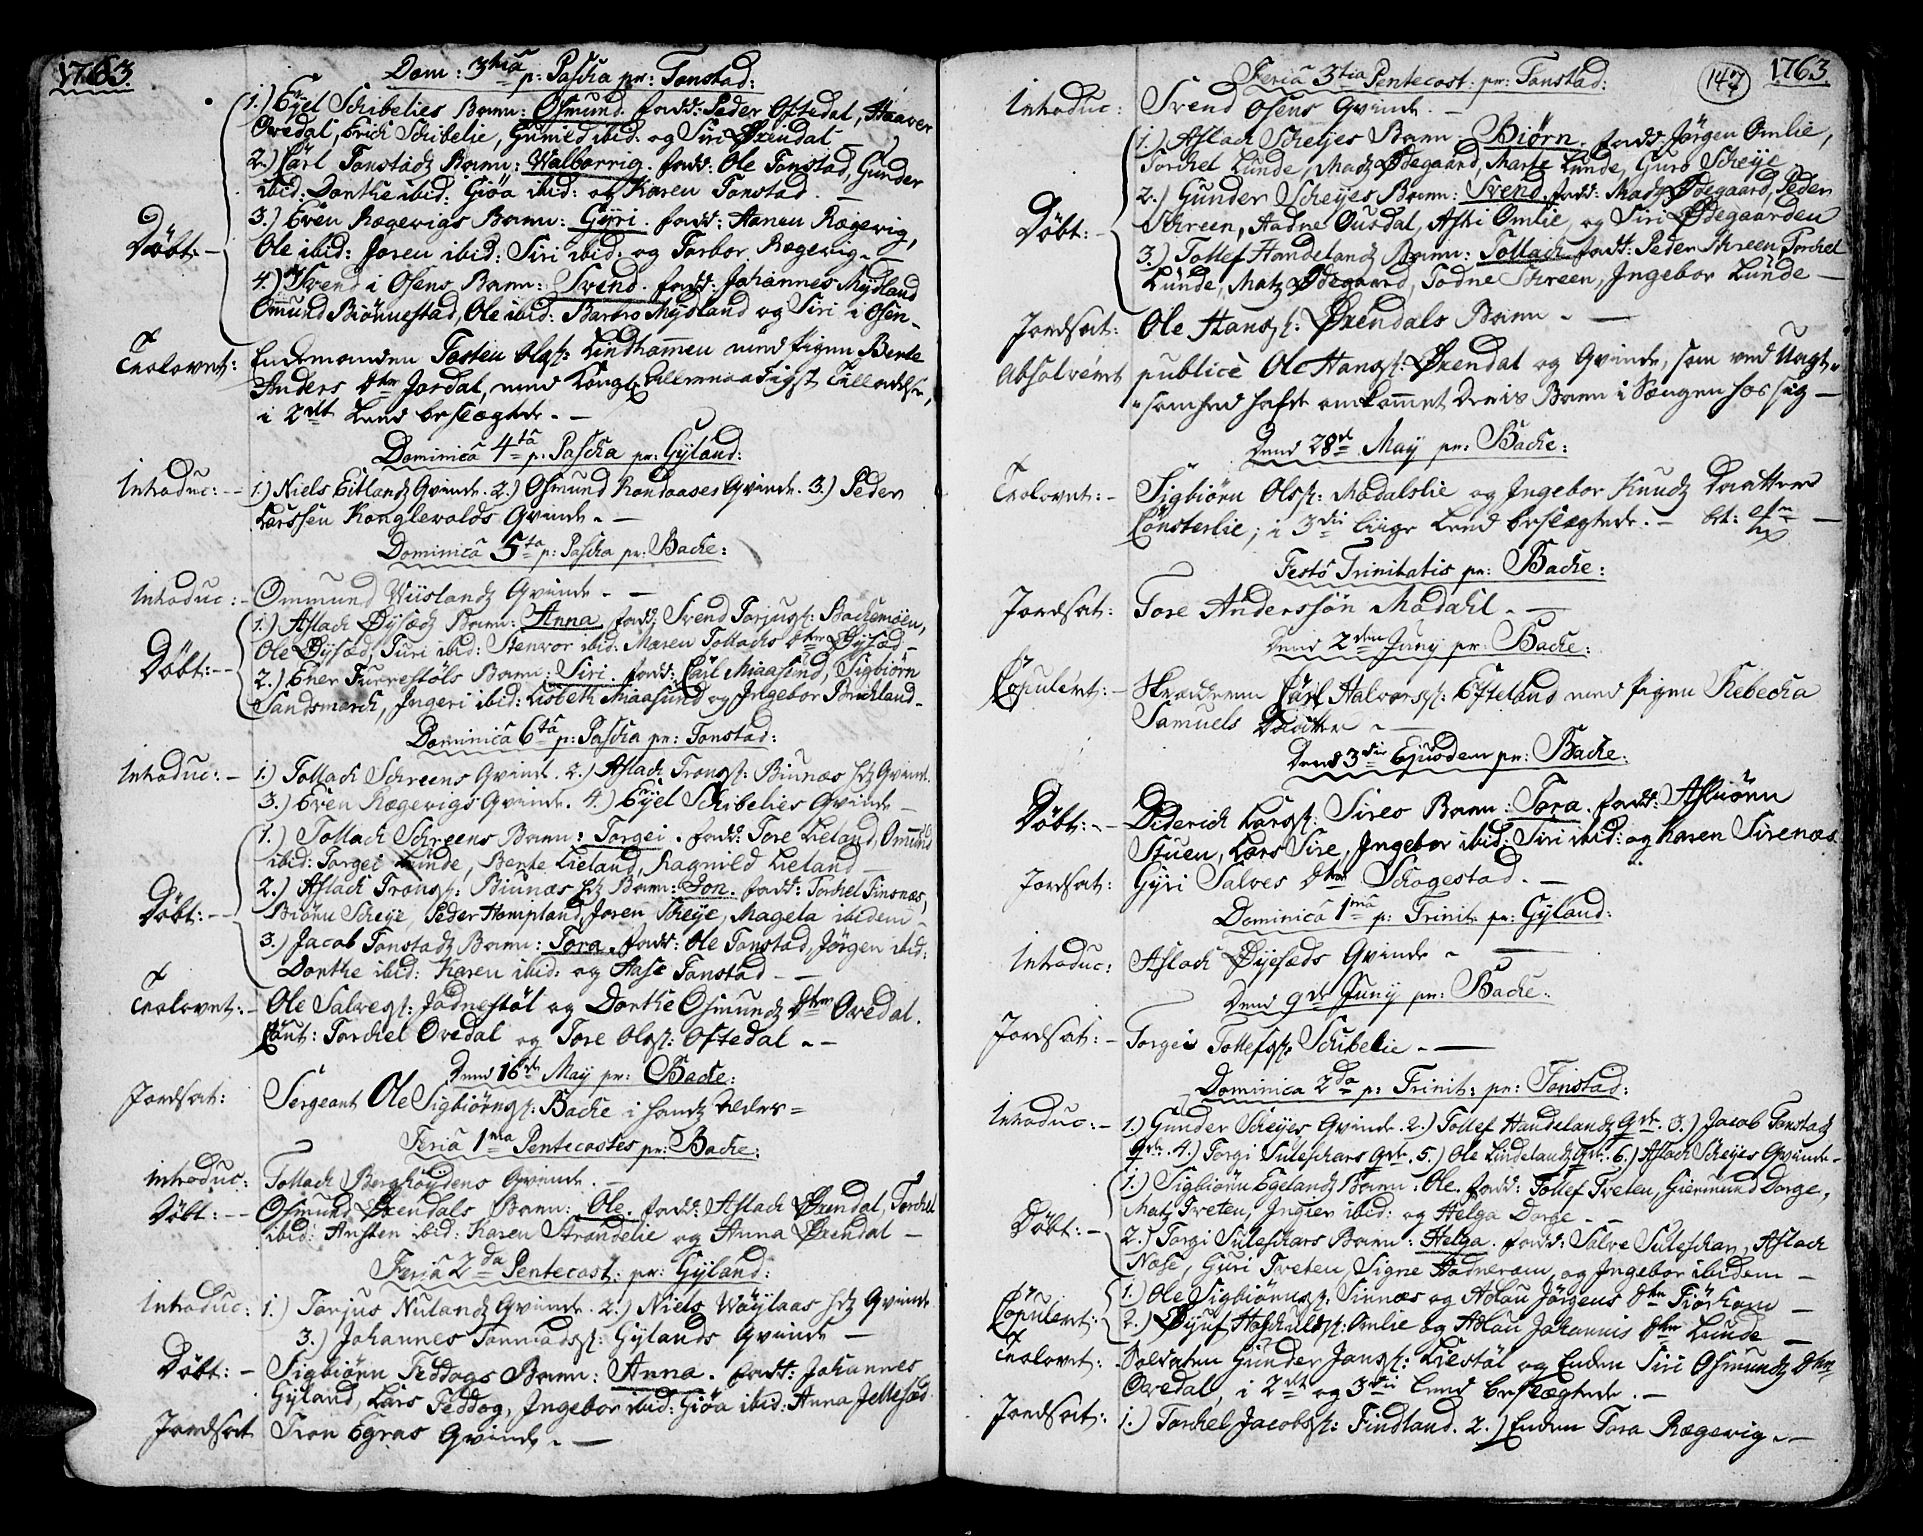 1763.
Dom: 3tia p: Pascha pr: Tonstad:
Døbt: 1.) Eyel Schibelies Barn: Osmund. fadd: Peder Oftedal, Haaver
Ovedal, Erich Schibelie, Gunild ibid: og Siri Øxendal
2.) Carl Tonstadz Barn: Walborrig. fadd: Ole Tonstad, Gunder
ibid: Dorthe ibid: Giøa ibid: og Karen Tonstad.
3.) Even Rægevigs Barn: Gyri. fadd: Hanen Rægevig,
Ole ibid: Joren ibid: Siri ibid: og Torbor Rægevig.
4.) Svend i Osens Barn: Svend. fadd: Johannes Mydland
Omund Biønnestad, Ole ibid: Barbro Mydland og Siri i Osen.
Trolovet: Enkemanden Tosten Olss: Lindhommen med pigen Berte
Anders Dtter Jordal, med Kongl: allernaadigst Tilladelse,
i 2det Leed beslægtede.
Dominica 4ta p: Pascha pr: Gyland:
Introduc: 1.) Niels Eitlandz Qvinde. 2.) Osmund Rondaases Qvinde. 3.) Peder
Larssen Konglevolds Qvinde.
Dominica 5ta p: Pascha pr: Backe:
Introduc: Ommund Wiislandz Qvinde.
Døbt: 1.) Aslach Øysædz Barn: Anna. fadd: Svend Torjuss: Backemoen,
Ole Øysæd, Turi ibid: Stenvor ibid: Maren Tollachs Dtter Øysæd
2.) Ener Furrestøls Barn: Siri. fadd: Carl Miaasund, Sigbiørn
Sandsmarck, Ingeri ibid: Lisbeth Miaasund og Ingebor Birchland.
Dominica 6ta p: Pascha pr: Tonstad:
Introduc: 1.) Tollach Schreens Qvinde. 2.) Aslach Tronss: Biunæs hs: Qvinde.
3.) Even Rægevigs Qvinde. 4.) Eyel Schibelies Qvinde
Døbt: 1.) Tollach Schreens Barn: Torgei. fadd: Tore Lieland, Omund
ibid: Torgei Lunde, Berte Lieland, Ragnild Lieland
2.) Aslach Tronss: Biunæs hs: Barn: Jon. fadd: Torchel Sinsnæs,
Biørn Scheye, Peder Hompland, Joren Scheye, Magela ibidem
3.) Jacob Tonstadz Barn: Tora. fadd: Ole Tonstad, Jørgen ibid:
Dorthe ibid: Karen ibid: og Aase Tonstad
Trolovet: Ole Salvess: Jodnestøl og Dorthe Osmundz Dtter Ovedal.
Caut: Torchel Ovedal og Tore Olss: Oftedal
Dend 16de May pr: Backe:
Jordsat: Sergeant Ole Sigbiørnss: Backe i hands Alder
Feria 1ma Pentecostes pr: Backe:
Introduc: Tollach Berghøydens Qvinde.
Døbt: Osmund Øxendals Barn: Ole. fadd: Aslach Øxendal, Torchel
ibid: Austen ibid: Karen Strandelie og Anna Øxendal
Feria 2da Pentecost: pr: Gyland:
Introduc: 1.) Torjus Nulandz Qvinde. 2.) Niels Wøylaas hs: Qvinde.
3.) Johannes Gylands Qvinde
Døbt: Sigbiørn Feddogs Barn: Anna. fadd: Johannes
Gyland, Lars Feddog, Ingebor ibid: Giøa ibid: Anna Jellesæd
Jordsat Tron Egras Qvinde.
147
1763
Feria 3tia Pentecost: pr: Tonstad:
Introduc: Svend Osens Qvinde.
Døbt: 1.) Aslach Scheyes Barn: Biørn. fadd: Jørgen Omlie,
Torchel Lunde, Madz Ødegaard, Marte Lunde, Guro Scheye.
2.) Gunder Scheyes Barn: Svend. fadd: Madz Ødegaard, Peder
Schreen, Aadne Ousdal, Astri Omlie, og Siri Ødegaarden
3.) Tollef Handelandz Barn: Tollach. fadd: Peder Schreen, Torchel
Lunde, Matz Ødegaard, Todne Schreen, Ingebor Lunde
Jordsat: Ole Hanss: Øxendals Barn.
Absolveret publicè Ole Hanss: Øxendal og Qvinde, som ved Uagt-
somhed hafde omkommet deris Barn i Sængen hos sig
Dend 28de May pr: Backe:
Trolovet: Sigbiørn Olss: Modalslie og Ingebor Knudz Daatter
Lønsterlie; i 3die liige Leed beslægtede.
Festo Trinitatis pr: Backe:
Jordsat: Tore Anderssøn Modahl.
Dend 2den Juny pr: Backe:
Copuleret: Skræderen Carl Halvorss: Eftteland med pigen Rebecka
Samuels Daatter
Dend 3die Ejusdem pr: Backe:
Døbt: Diderich Larss: Sires Barn: Tora. fadd: Asbiørn
Stuen, Lars Sire, Ingebor ibid: Siri ibid: og Karen Sirenæs
Jordsat: Gyri Salves Dtter Schogestad.
Dominica 1ma p: Trinit: pr: Gyland:
Introduc: Aslach Øyesæds Qvinde
Dend 9de Juny pr: Backe:
Jordsat: Torgei Tollefss: Schibelie.
Dominica 2da p: Trinit: pr: Tonstad:
Introduc: 1.) Gunder Scheyes Qvinde. 2.) Tollef Handelandz Qvde. 3.) Jacob Tonstadz
Qvde. 4.) Torgi Suleskars Qvde. 5.) Ole Lindelandz Qvde. 6.) Aslach Scheyes Qvinde.
Døbt: 1.) Sigbiørn Egelandz Barn: Ole. fadd: Tollef Treten, Giermund Dorge,
Matz Treten, Ingier ibid: og Helga Dorge
2.) Torgi Suleskars Barn: Helga. fadd: Salve Suleskar, Aslach
Nose, Guri Treten, Signe Hadneram, og Ingebor ibidem
Copuleret: 1.) Ole Sigbiørnss: Sinnæs og Adlau Jørgens Dtter Tiørhom
2.) Øyuf Hoschuldss: Omlie og Adlau Johannis Dtter Lunde
Trolovet: Soldaten Gunder Jonss: Liestøl og Enken Siri Osmundz Dtter
Ovedal, i 2det og 3die Leed beslægtede.
Jordsat: 1.) Torchel Jacobss: Findland. 2.) Enken Tora Rægevig.